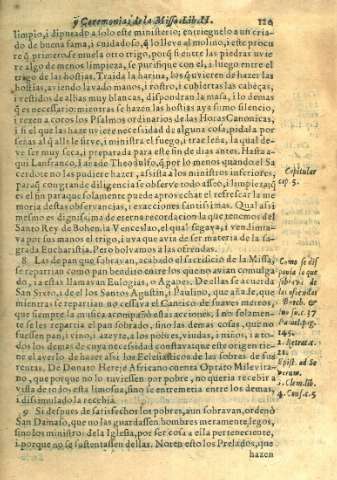 y Ceremonias de la Missa. Lib. II. 126
limpio, i dipueado a solo este ministerio; entrieguelo a un cria-
do de buena fama, i cuidadoso, q̃ lo lleve al molino; i este procu
re q̃ primero se muela otro trigo, porq̃ si entre las piedras uvie
re algo de menos limpieza, se purifique con el, a luego entre el
trigo de las hostias. Traida la harina, los q̃ uvieren de hazer las
hostias, aviendo lavado manos, i rostro, i cubiertas las cabeças,
i vestidos de albas muy blancas, dispondran la masa, i lo demas
q̃ es necessario: mientras se hazen las hostias aya sumo silencio,
i rezen a coros los Psalmos ordinarios de las Horas Canonicas,
i si el que las haze uviere necessidad de alguna cosa, pidala por
señas al q̃ alli le sirve, i ministra el fuego, i trae leña, la qual de-
ve ser muy seca, i preparada para este fin de dias antes. Hasta a-
qui Lanfranco, i añade Theodulfo, q̃ por lo menos quando el Sa
cerdote no las pudiere hazer, assista a los ministros inferiores,
paraq̃ con grande diligencia se observe todo asseo, i limpieza, q̃
es el fin paraque solamente puede aprovechar el refrescar la me
moria destas observancias, i exacciones santissimas. Qual assi
mesmo es dignissima de eterna recordacion la que tenemos del
Santo Rey de Bohemia Venceslao, el qual segava, i vendimia-
va por sus manos el trigo, i uva que avia de ser materia de la sa-
grada Eucharistia. Pero bolvamos a las ofrendas.
8 Las de pan que sobravan, acabado el sacrificio de la Missa,
se repartian como pan bendito entre los que no avian comulga
do, i a estas llamavan Eulogias, o Agapes. De ellas se acuerda
San Sixto, i de el los Santos Agustin, i Paulino, que añade, que
mientras se repartian no cessava el Cantico de suaves metros,
que siempre la musica acompañò estas acciones. I no solamen-
te se les repartia el pan sobrado, sino las demas cosas, que no
fuessen pan, i vino, i azeyte, a los pobres, viudas, i niños, i a to-
dos los demas de cuya necessidad constava: que este origen tie-
ne el averlo de hazer assi los Eclesiasticos de las sobras de sus
rentas. De Donato Herege Africano cuenta Optato Milevita-
no, que porque no lo tuviessen por pobre, no queria recebir a
vista de todos esta limosna, sino se entremetia entre los demas,
i dissimulado la recebia.
9 Si despues de satisfechos los pobres, aun sobravan, ordenò
San Damaso, que no las guardassen hombres meramente, legos,
sino los ministros de la Iglesia, por ser cosa a ella perteneciente,
i porque no se sustentassen dellas. Noten esto los Prelados, que
hazen
Capitular
cap. 5.
Como se dis
ponia lo que
sobrava de
las ofrendas